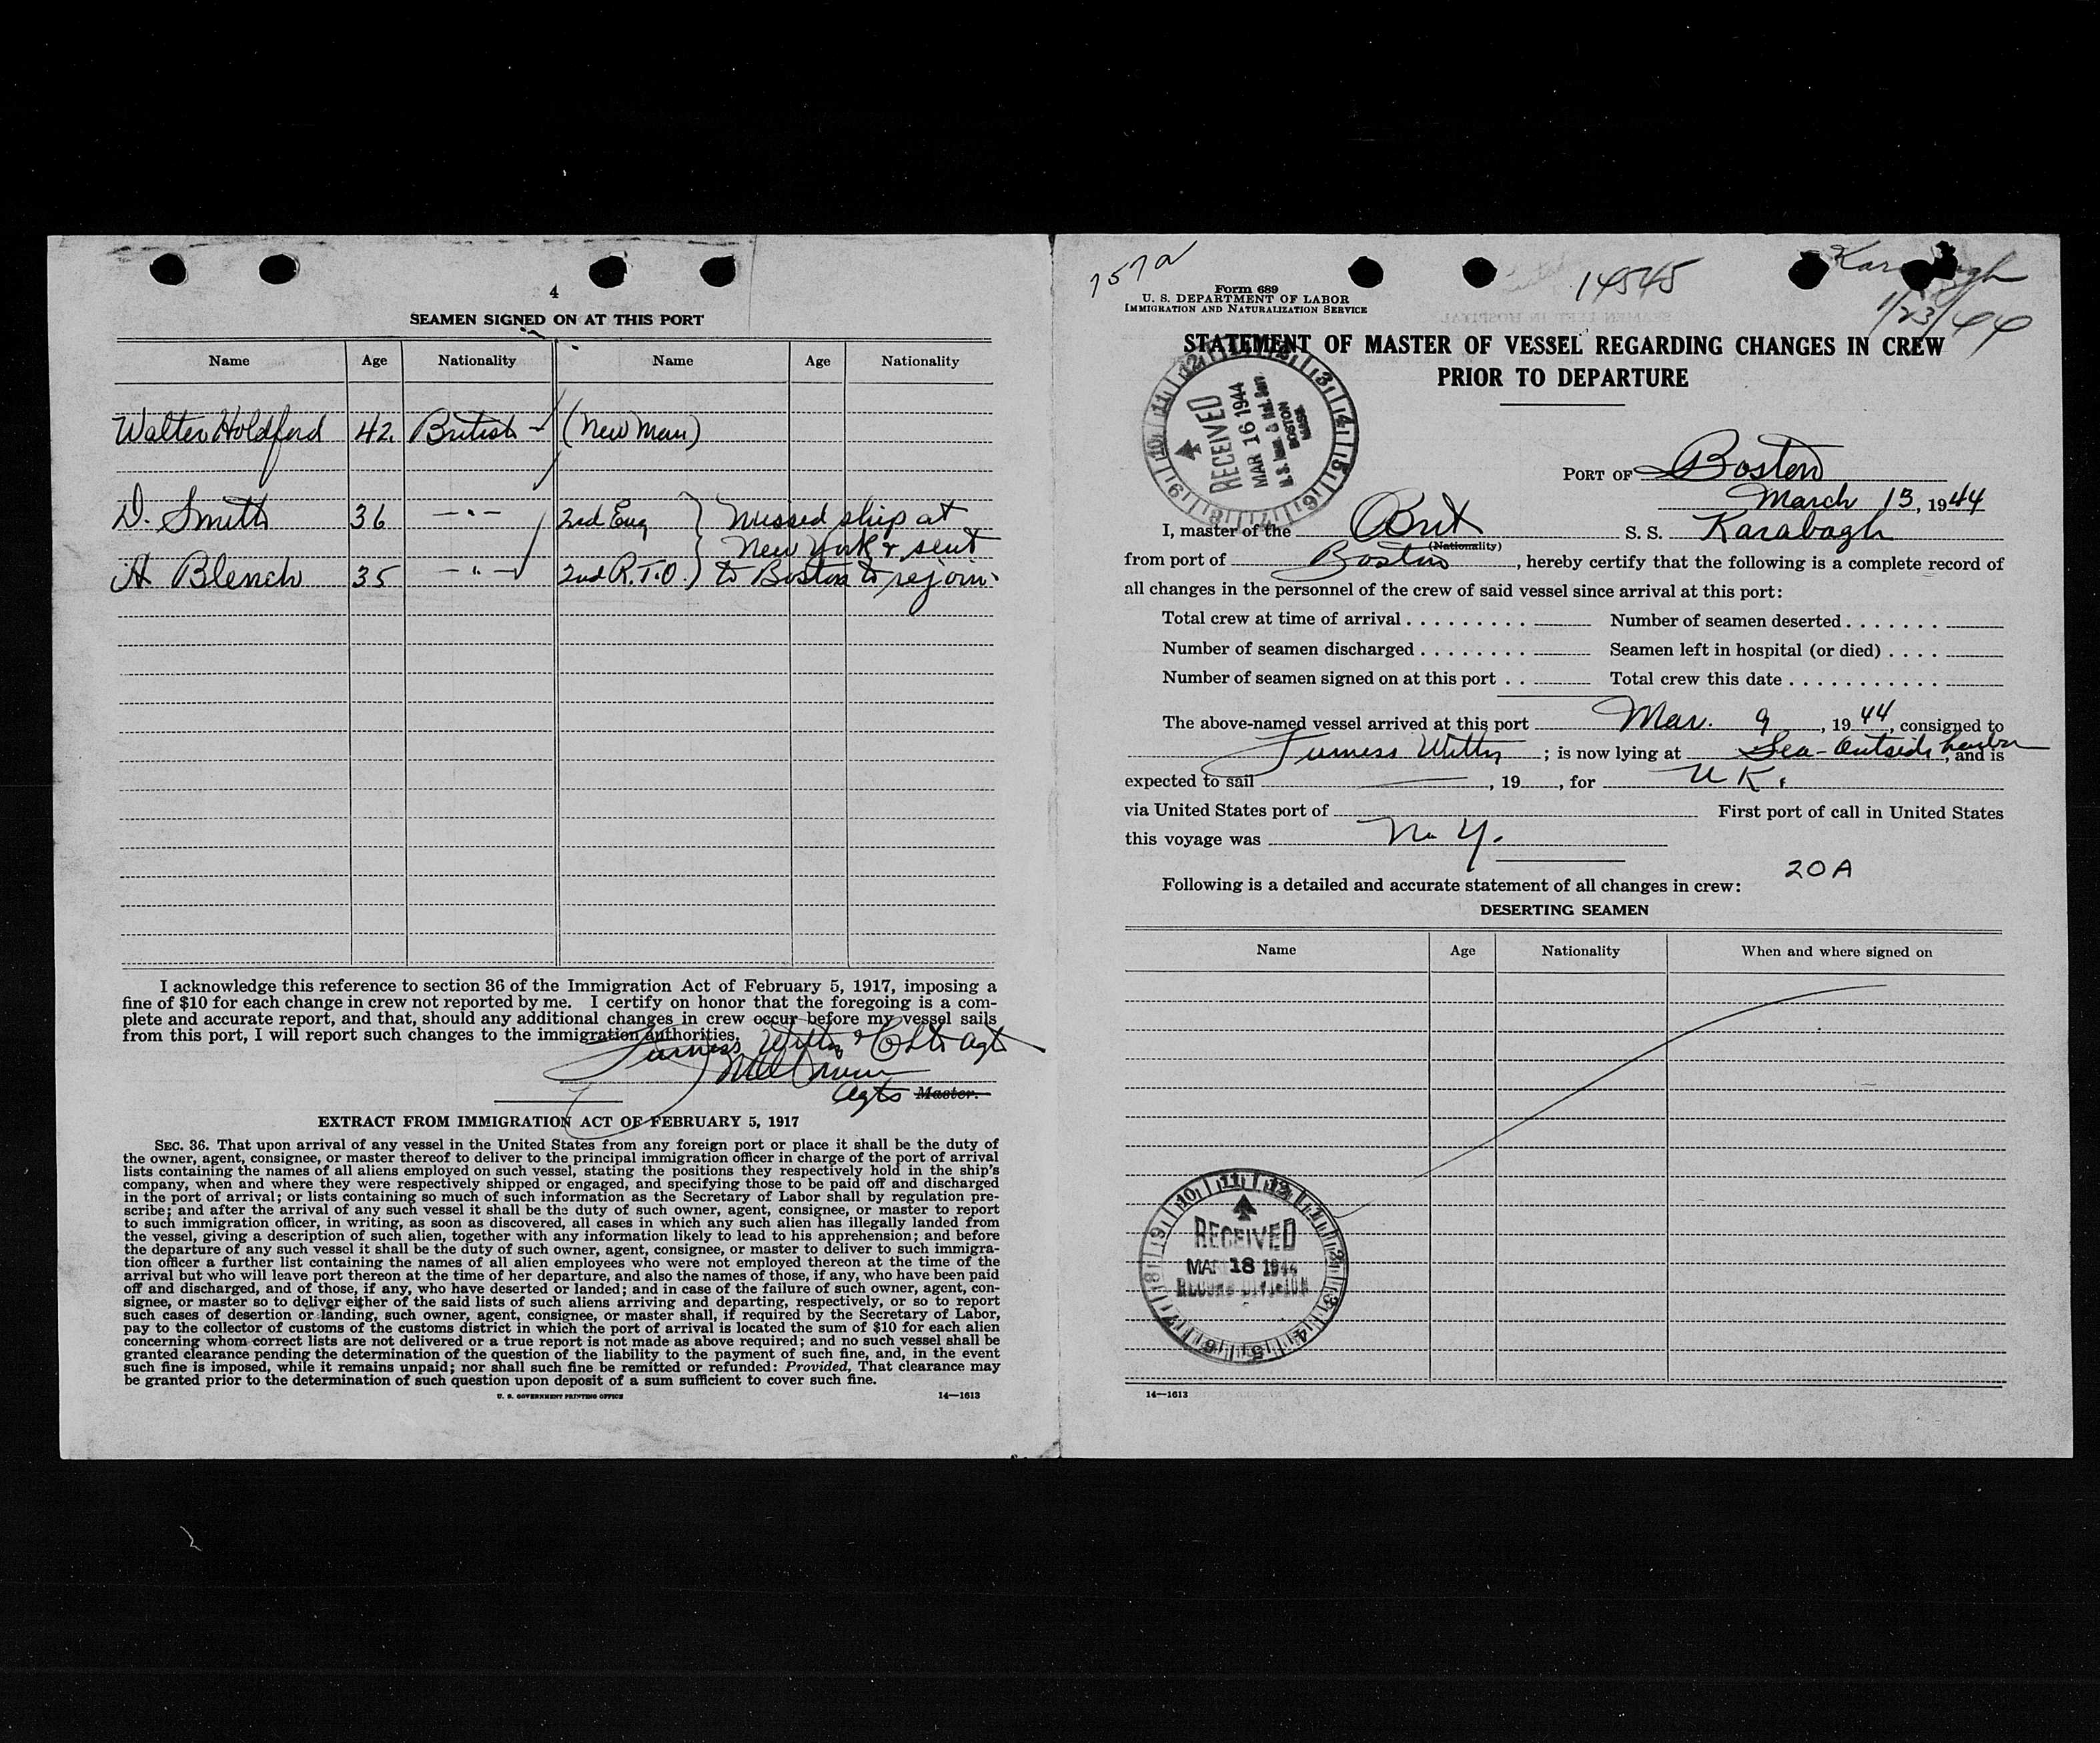 4
SEAMEN SIGNED ON AT THIS PORT
Name Age Nationality Name Age Nationality
Walter Holdford 42 British (New Man)
D. Smith 36 —"— 2nd Eng } Missed ship at
New York & sent
A Blench 35 —"— 2nd R.T.O. } to Boston to rejoin.
I acknowledge this reference to section 36 of the Immigration Act of February 5, 1917, imposing a
fine of $10 for each change in crew not reported by me. I certify on honor that the foregoing is a com-
plete and accurate report, and that, should any additional changes in crew occur before my vessel sails
from this port, I will report such changes to the immigration authorities.
Furness Withy & Co Ltd Agt
Agts Master.
EXTRACT FROM IMMIGRATION ACT OF FEBRUARY 5, 1917
SEC. 36. That upon arrival of any vessel in the United States from any foreign port or place it shall be the duty of
the owner, agent, consignee, or master thereof to deliver to the principal immigration officer in charge of the port of arrival
lists containing the names of all aliens employed on such vessel, stating the positions they respectively hold in the ship's
company, when and where they were respectively shipped or engaged, and specifying those to be paid off and discharged
in the port of arrival; or lists containing so much of such information as the Secretary of Labor shall by regulation pre-
scribe; and after the arrival of any such vessel it shall be the duty of such owner, agent, consignee, or master to report
to such immigration officer, in writing, as soon as discovered, all cases in which any such alien has illegally landed from
the vessel, giving a description of such alien, together with any information likely to lead to his apprehension; and before
the departure of any such vessel it shall be the duty of such owner, agent, consignee, or master to deliver to such immigra-
tion officer a further list containing the names of all alien employees who were not employed thereon at the time of the
arrival but who will leave port thereon at the time of her departure, and also the names of those, if any, who have been paid
off and discharged, and of those, if any, who have deserted or landed; and in case of the failure of such owner, agent, con-
signee, or master so to deliver either of the said lists of such aliens arriving and departing, respectively, or so to report
such cases of desertion or landing, such owner, agent, consignee, or master shall, if required by the Secretary of Labor,
pay to the collector of customs of the customs district in which the port of arrival is located the sum of $10 for each alien
concerning whom correct lists are not delivered or a true report is not made as above required; and no such vessel shall be
granted clearance pending the determination of the question of the liability to the payment of such fine, and, in the event
such fine is imposed, while it remains unpaid; nor shall such fine be remitted or refunded: Provided, That clearance may
be granted prior to the determination of such question upon deposit of a sum sufficient to cover such fine.
U. S. GOVERNMENT PRINTING OFFICE 14—1613
757a
Form 689
U. S. DEPARTMENT OF LABOR
IMMIGRATION AND NATURALIZATION SERVICE
14545
1/23/44
STATEMENT OF MASTER OF VESSEL REGARDING CHANGES IN CREW
PRIOR TO DEPARTURE
RECEIVED
MAR 16 1944
U. S. Imm. & Nat. Serv.
BOSTON
MASS.
PORT OF Boston
March 13, 1944
I, master of the Brit S. S. Karabagh
(Nationality)
from port of Boston, hereby certify that the following is a complete record of
all changes in the personnel of the crew of said vessel since arrival at this port:
Total crew at time of arrival Number of seamen deserted
Number of seamen discharged Seamen left in hospital (or died)
Number of seamen signed on at this port Total crew this date
The above-named vessel arrived at this port Mar. 9, 1944, consigned to
Furness Withy; is now lying at Sea-outside harbor, and is
expected to sail —, 19, for U K.
via United States port of First port of call in United States
this voyage was N. Y.
20A
Following is a detailed and accurate statement of all changes in crew:
DESERTING SEAMEN
Name Age Nationality When and where signed on
RECEIVED
MAR 18 1944
RECORD DIVISION
14—1613